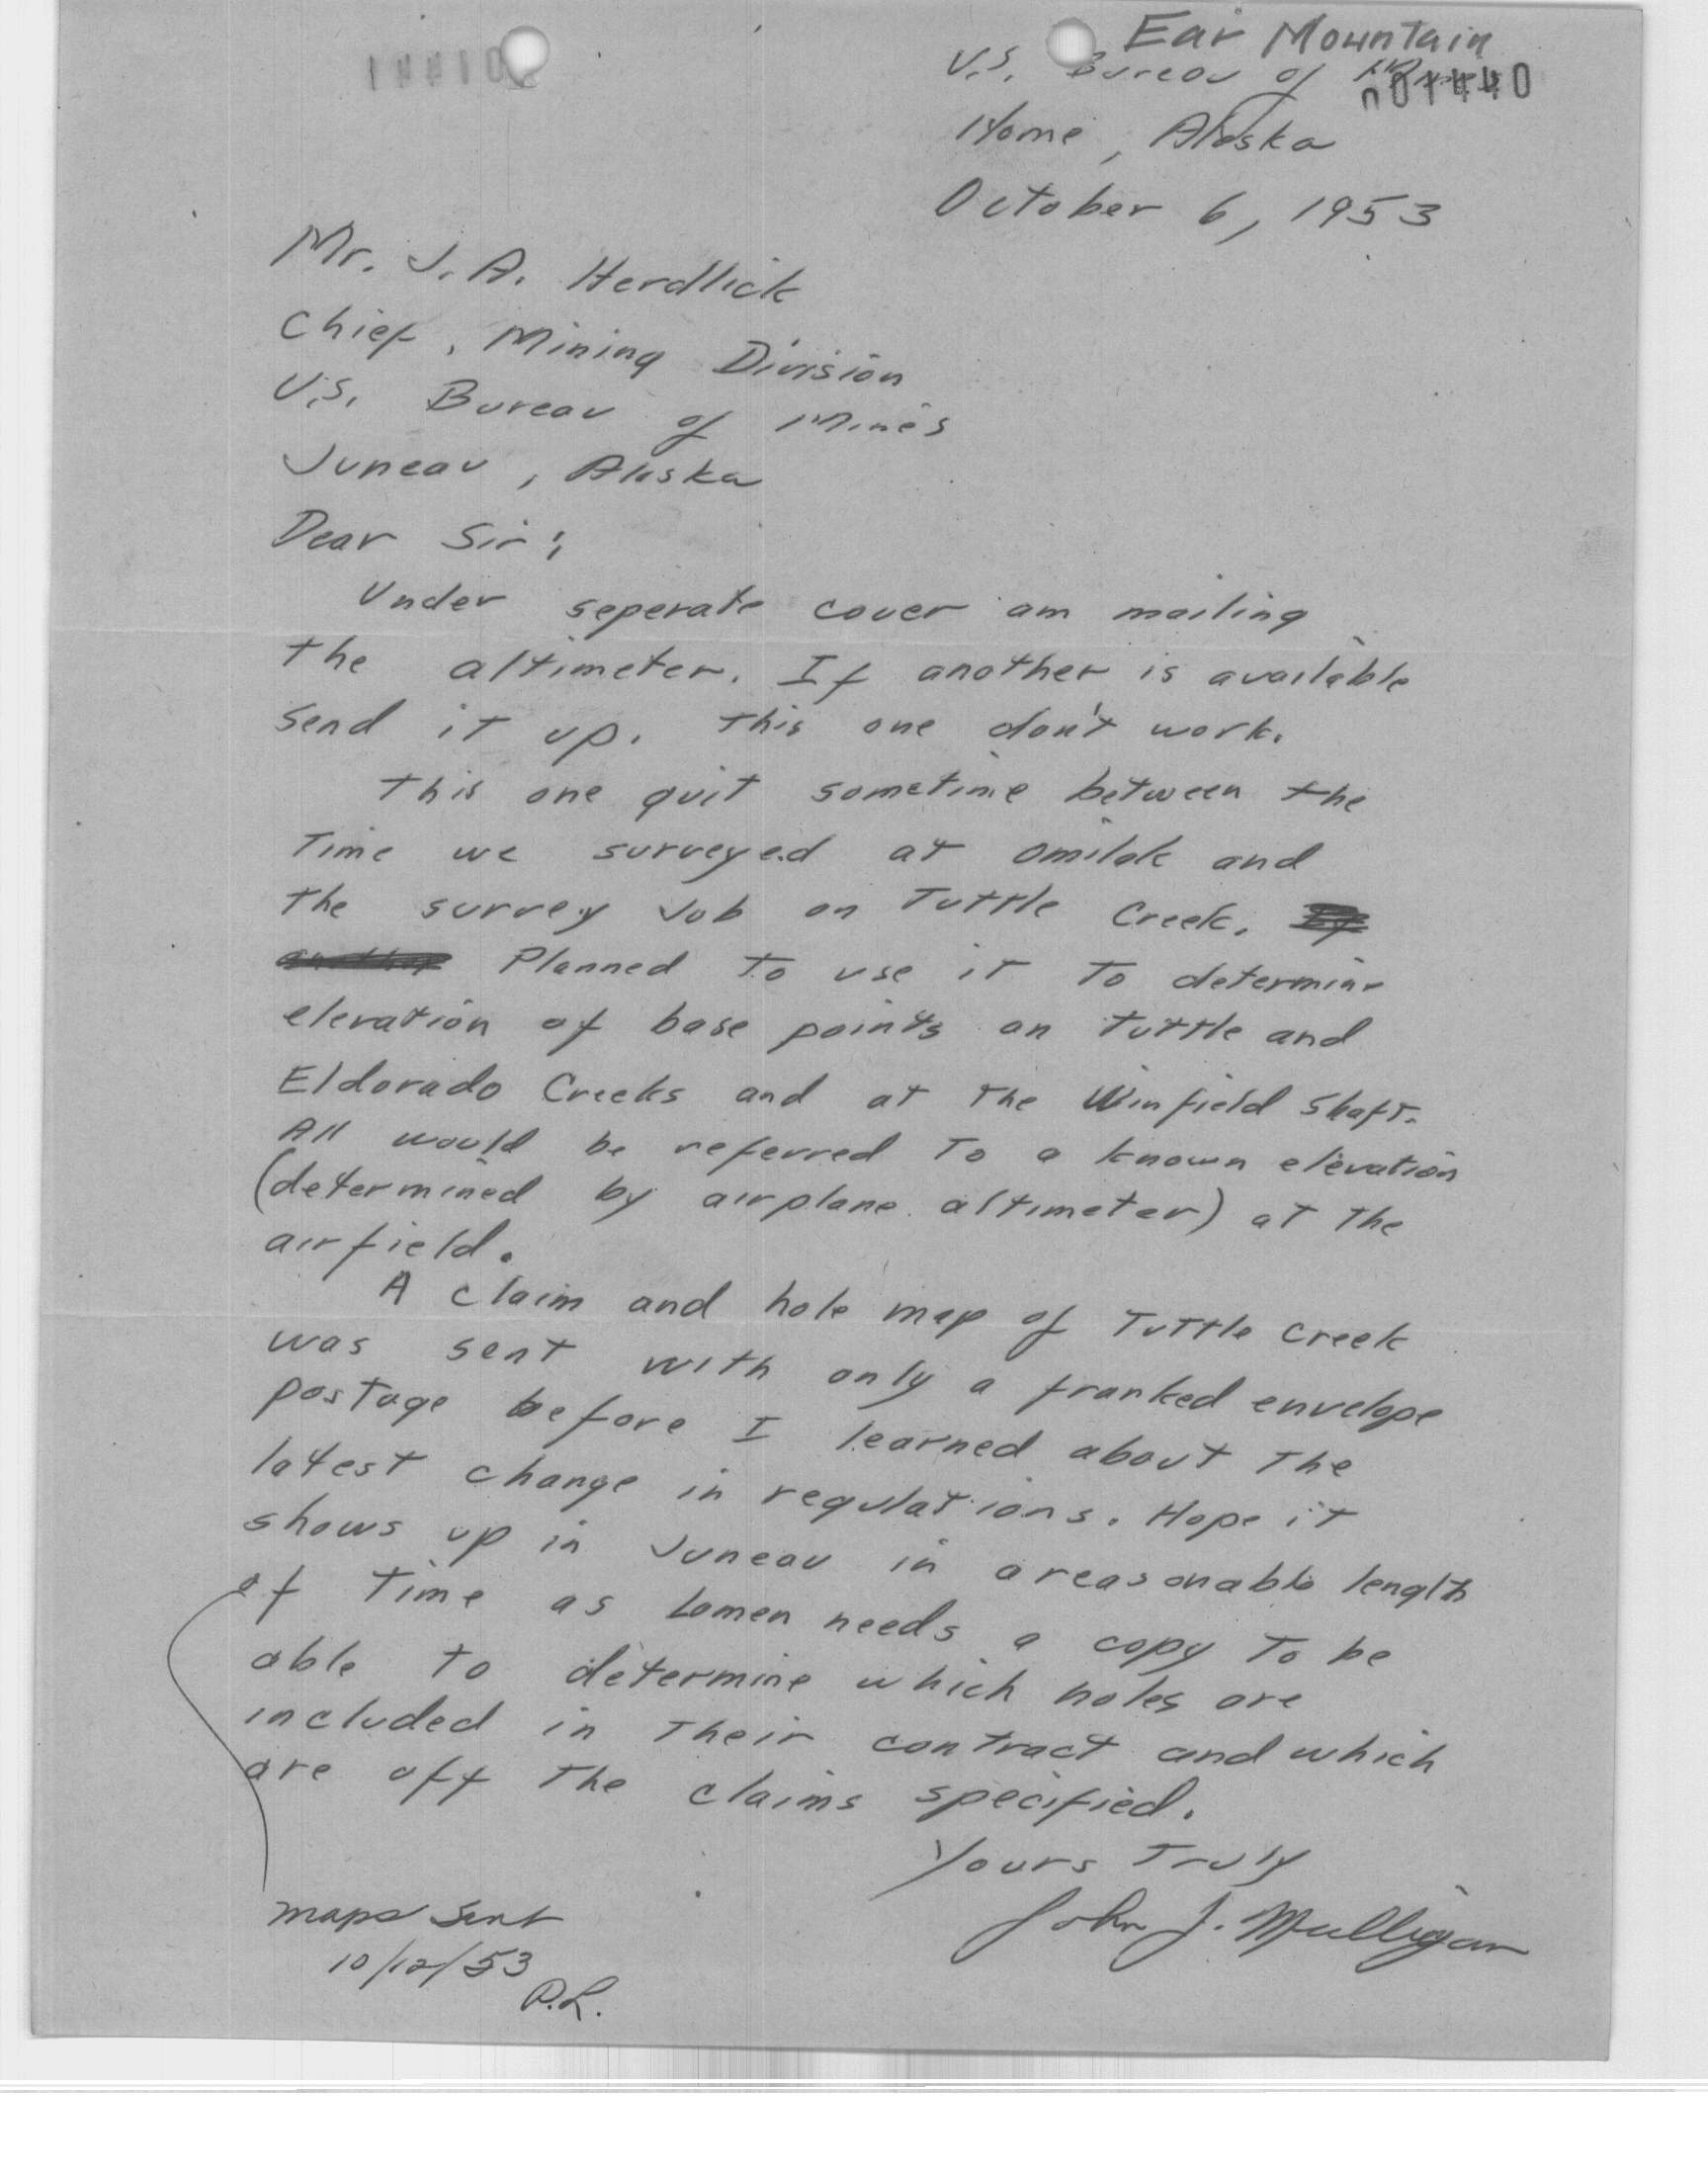 Ear Mountain
U.S. Bureau of Mines
001440
Nome, Alaska
October 6, 1953
Mr. J. A. Herdlick
Chief, Mining Division
U.S. Bureau of Mines
Juneau, Alaska
Dear Sir:
Under seperate cover am mailing
the altimeter. If another is available
send it up. This one don't work.
This one quit sometime between the
time we surveyed at Omilak and
the survey job on Tuttle Creek. If
another Planned to use it to determine
elevation of base points on Tuttle and
Eldorado Creeks and at the Winfield Shaft.
All would be referred to a known elevation
(determined by airplane altimeter) at the
airfield.
A claim and hole map of Tuttle Creek
was sent with only a franked envelope
postage before I learned about the
latest change in regulations. Hope it
shows up in Juneau in a reasonable length
of time as Lomen needs a copy to be
able to determine which holes are
included in their contract and which
are off the claims specified.
Yours Truly
John J. Mulligan
maps sent
10/12/53